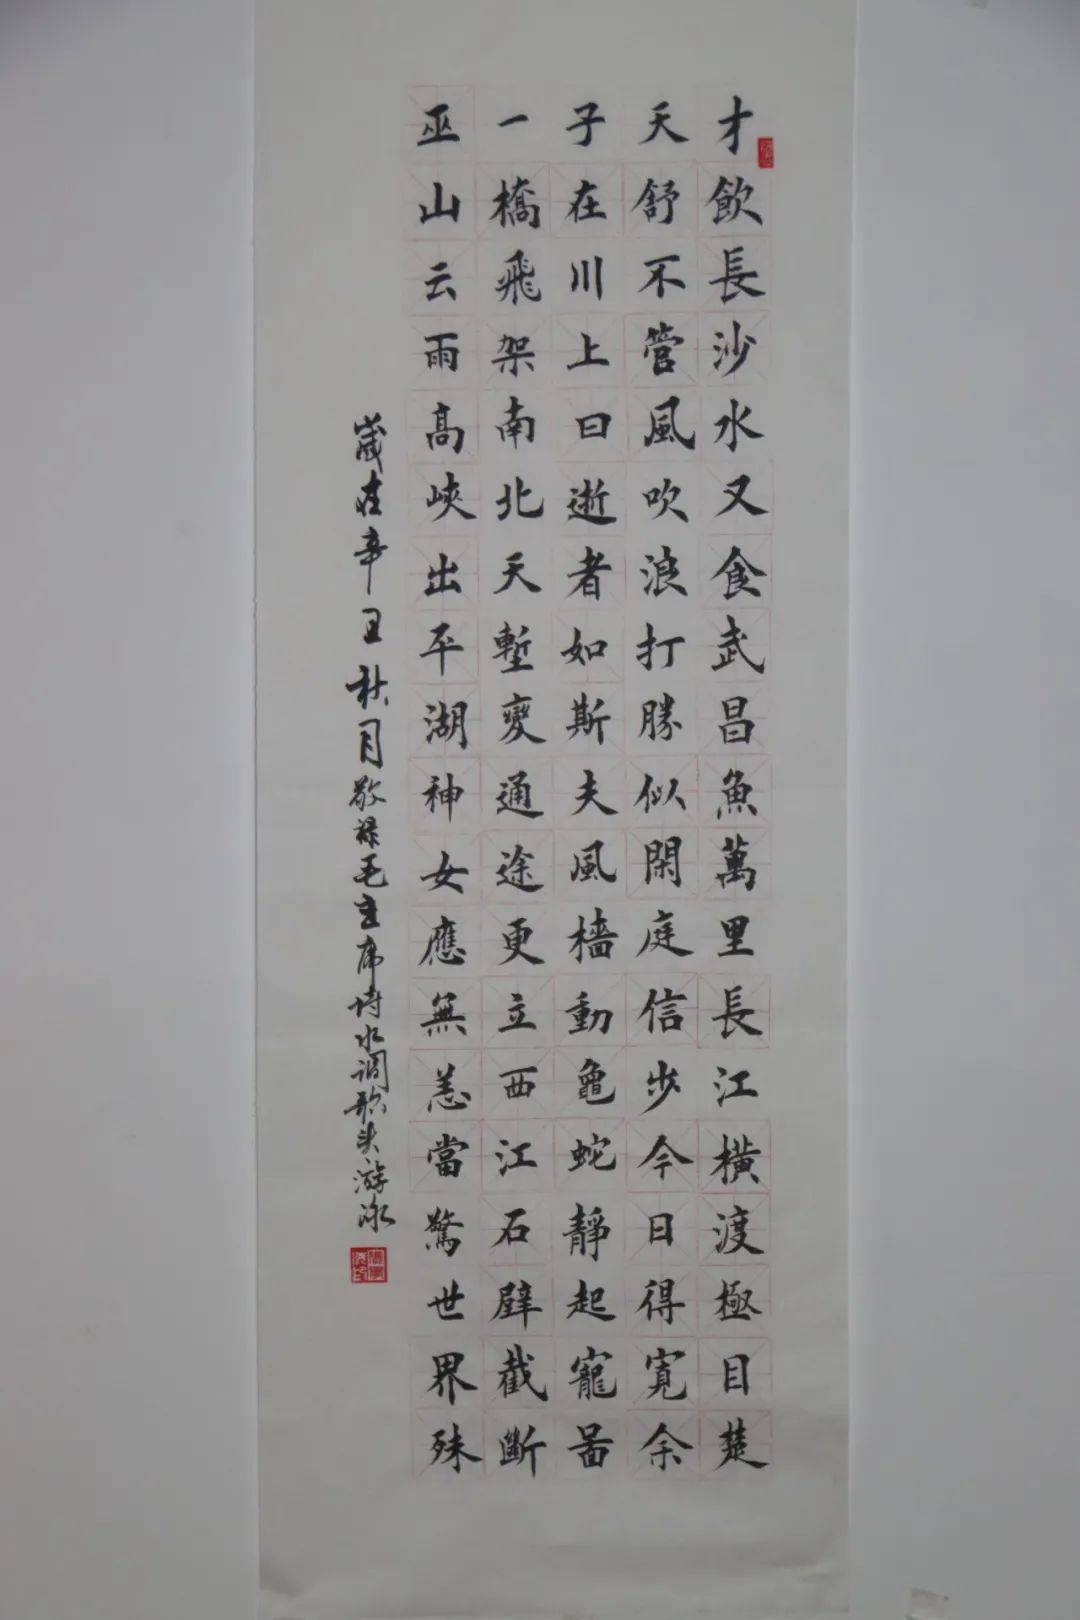 才飲長沙水又食武昌魚萬里長江橫渡極目楚
天舒不管風吹浪打勝似閑庭信步今日得寬余
子在川上曰逝者如斯夫風檣動龜蛇靜起寵啚
一橋飛架南北天塹變通途更立西江石壁截斷
巫山云雨高峽出平湖神女應無恙當驚世界殊
歲在辛丑秋月敬録毛主席诗水调歌头游泳